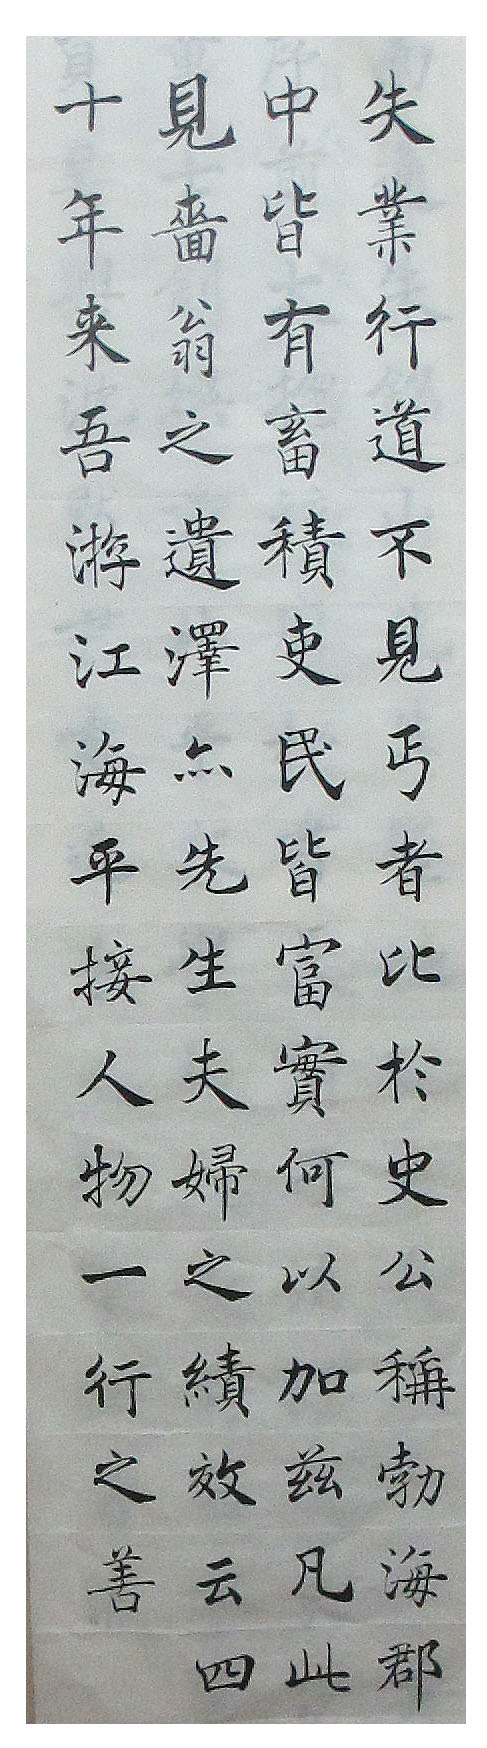 失業行道不見丐者比於史公稱勃海郡
中皆有畜積吏民皆富實何以加茲凡此
見嗇翁之遺澤亦先生夫婦之績效云四
十年来吾游江海平接人物一行之善